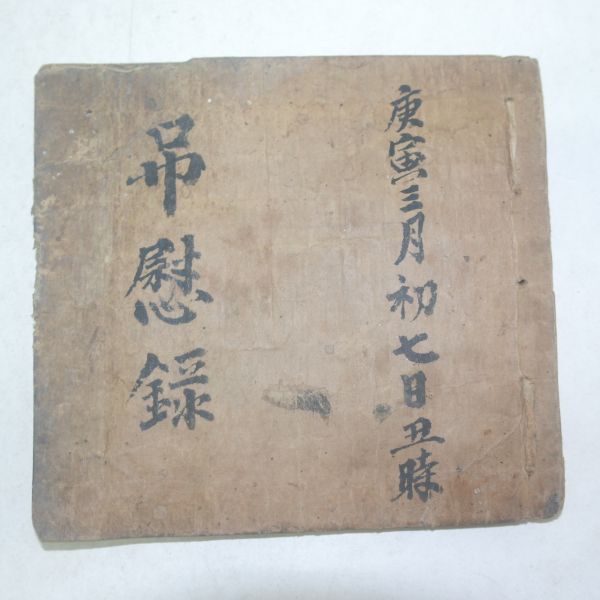 庚寅三月初七日丑時
吊慰録